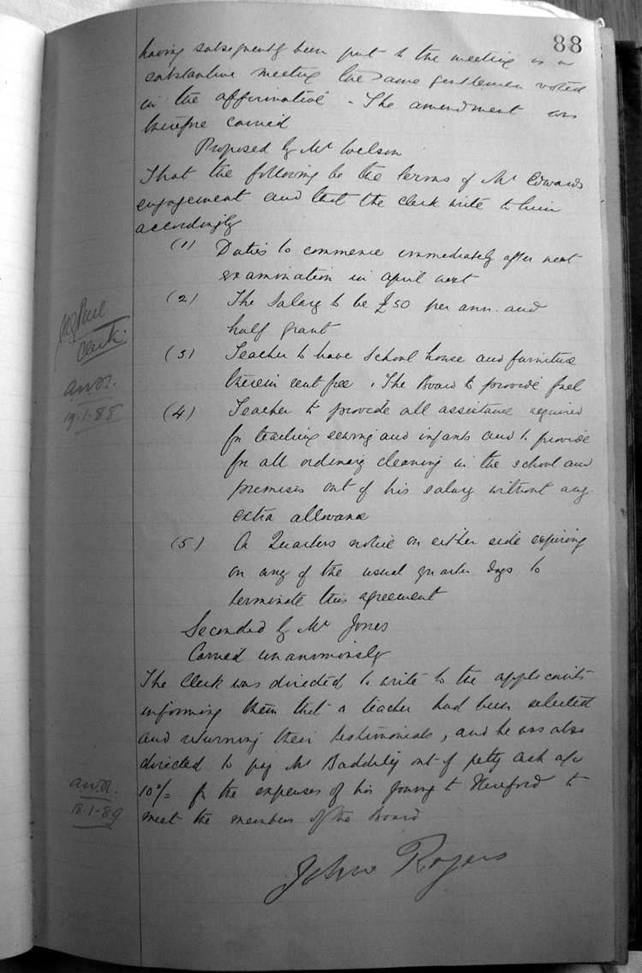 88
having subsequently been put to the meeting as a
substantive meeting the same gentlemen voted
in the affirmative. The amendment was
therefore carried
Proposed by Mr Wilson
That the following be the terms of Mr Edwards
engagement and that the clerk write to him
accordingly
(1) Duties to commence immediately after next
examination in April next
(2) The Salary to be £50 per ann. and
half grant
(3) Teacher to have School house and furniture
therein rent free. The Board to provide fuel
(4) Teacher to provide all assistance required
for teaching sewing and infants and to provide
for all ordinary cleaning in the school and
premises out of his salary without any
extra allowance
(5) A Quarters notice on either side expiring
on any of the usual quarter days to
terminate this agreement
Seconded by Mr Jones
Carried unanimously
The Clerk was directed to write to the applicants
informing them that a teacher had been selected
and returning their testimonials, and he was also
directed to pay Mr Baddeley out of petty cash a/c
10/- for the expenses of his journey to Hereford to
meet the members of the Board
John Rogers
Clerk.
18.1.89